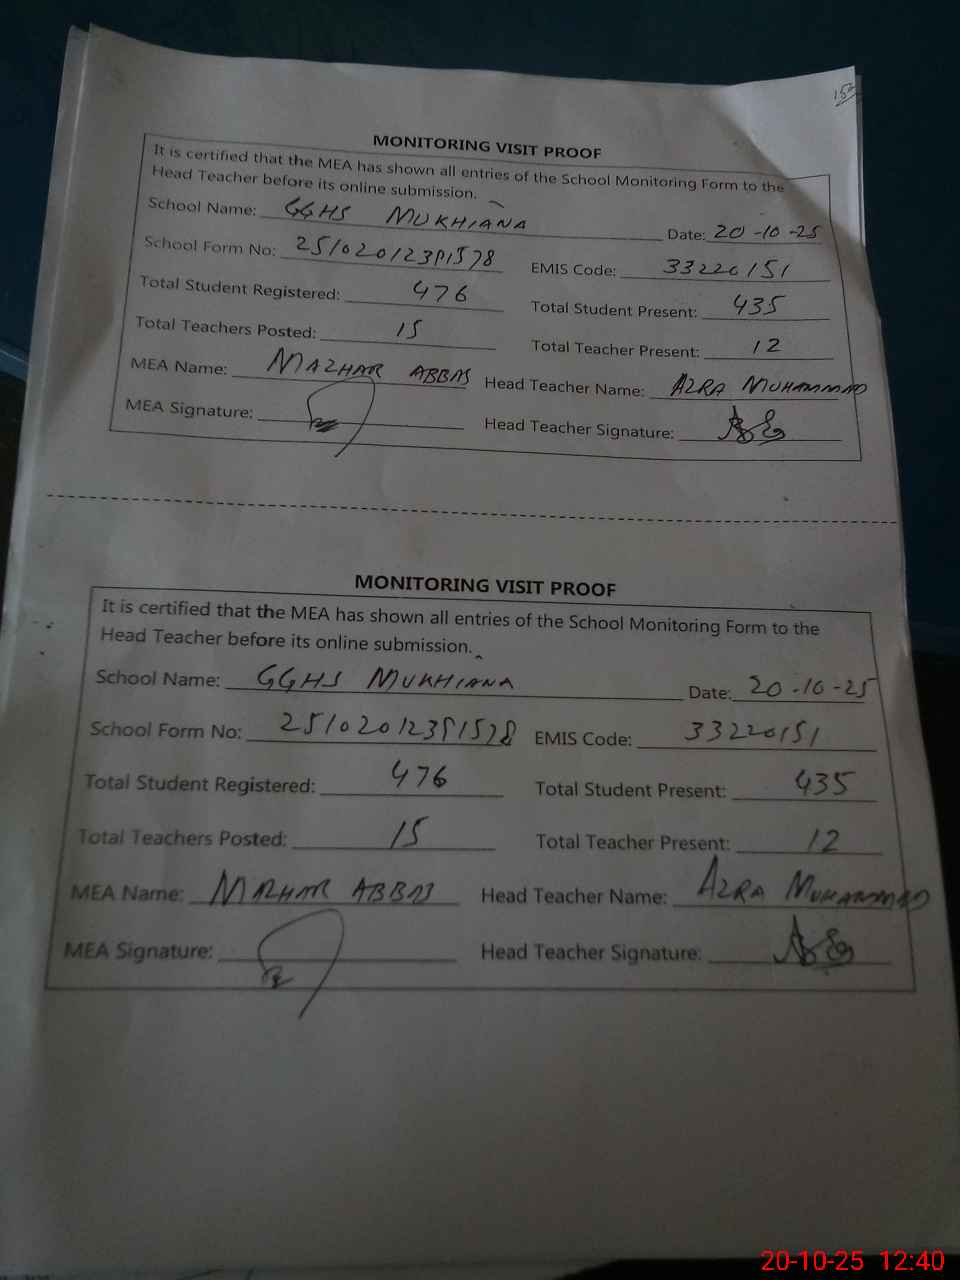 152
MONITORING VISIT PROOF
It is certified that the MEA has shown all entries of the School Monitoring Form to the
Head Teacher before its online submission.
School Name: GGHS MUKHIANA Date: 20-10-25
School Form No: EMIS Code: 33220151
Total Student Registered: 476 Total Student Present: 435
Total Teachers Posted: 15 Total Teacher Present: 12
MEA Name: MAZHAR ABBAS Head Teacher Name: AZRA MUHAMMAD
MEA Signature: Head Teacher Signature:
MONITORING VISIT PROOF
It is certified that the MEA has shown all entries of the School Monitoring Form to the
Head Teacher before its online submission.
School Name: GGHS MUKHIANA Date: 20-10-25
School Form No: EMIS Code: 33220151
Total Student Registered: 476 Total Student Present: 435
Total Teachers Posted: 15 Total Teacher Present: 12
MEA Name: MAZHAR ABBAS Head Teacher Name: AZRA MUHAMMAD
MEA Signature: Head Teacher Signature:
20-10-25 12:40